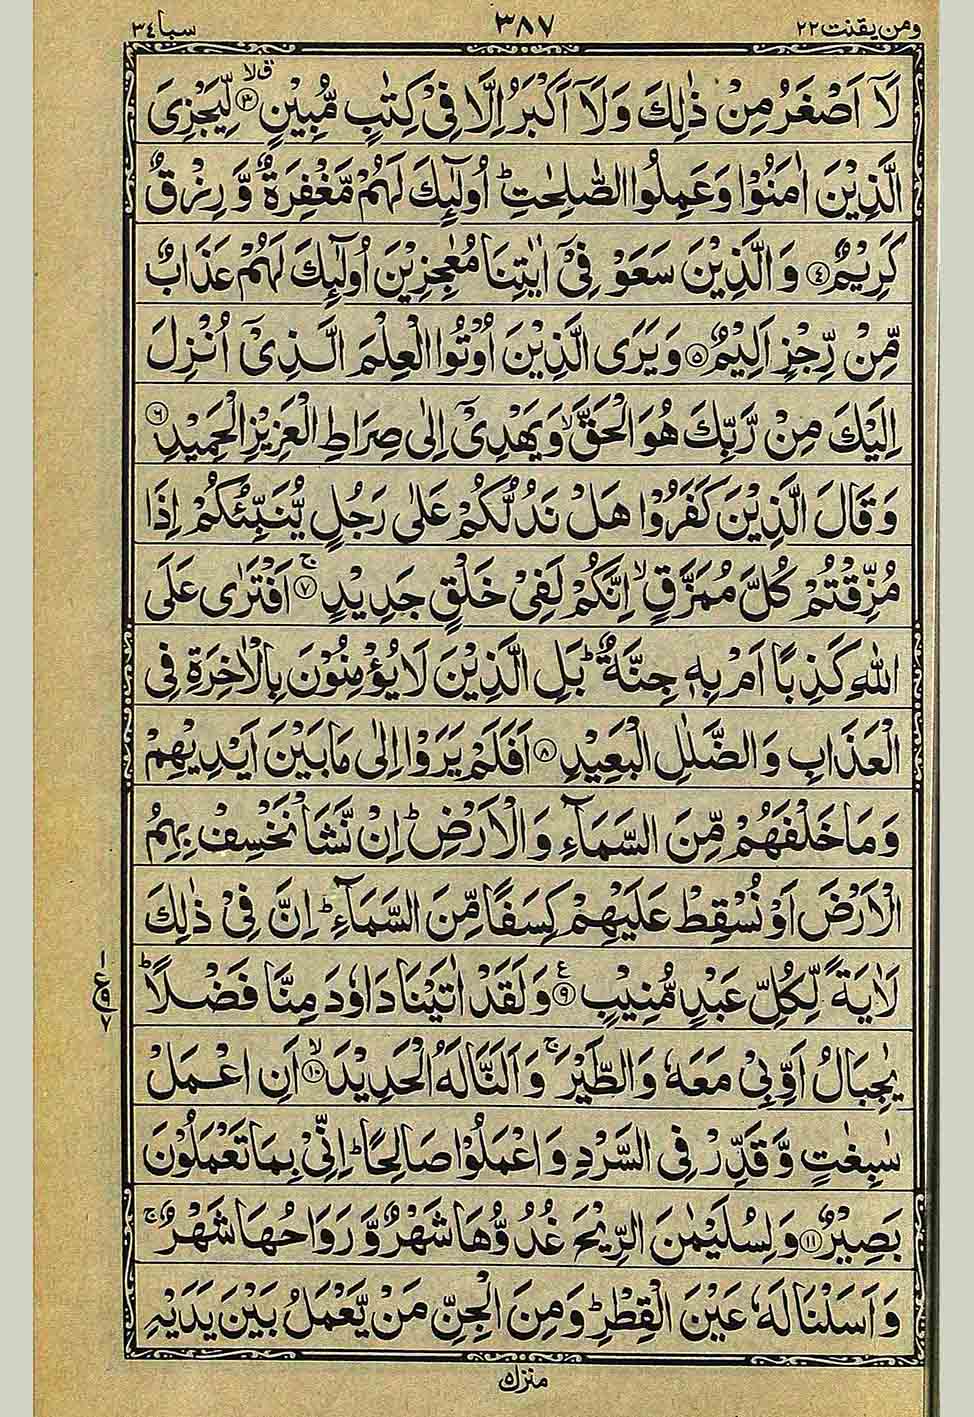 ومن یقنت ۲۲
۳۸۷
سبا ۳٤
لَاۤ اَصْغَرُ مِنْ ذٰلِكَ وَلَاۤ اَكْبَرُ اِلَّا فِیْ كِتٰبٍ مُّبِیْنٍ ﴿۳﴾ۙق لِّیَجْزِیَ
الَّذِیْنَ اٰمَنُوْا وَعَمِلُوا الصّٰلِحٰتِ ؕ اُولٰٓىِٕكَ لَهُمْ مَّغْفِرَةٌ وَّ رِزْقٌ
كَرِیْمٌ ﴿٤﴾ وَ الَّذِیْنَ سَعَوْ فِیْۤ اٰیٰتِنَا مُعٰجِزِیْنَ اُولٰٓىِٕكَ لَهُمْ عَذَابٌ
مِّنْ رِّجْزٍ اَلِیْمٌ ﴿۵﴾ وَیَرَی الَّذِیْنَ اُوْتُوا الْعِلْمَ الَّذِیْۤ اُنْزِلَ
اِلَیْكَ مِنْ رَّبِّكَ هُوَ الْحَقَّ ۙ وَیَهْدِیْۤ اِلٰی صِرَاطِ الْعَزِیْزِ الْحَمِیْدِ ﴿۶﴾
وَقَالَ الَّذِیْنَ كَفَرُوْا هَلْ نَدُلُّكُمْ عَلٰی رَجُلٍ یُّنَبِّئُكُمْ اِذَا
مُزِّقْتُمْ كُلَّ مُمَزَّقٍ ۙ اِنَّكُمْ لَفِیْ خَلْقٍ جَدِیْدٍ ﴿۷﴾ۚ اَفْتَرٰی عَلَی
اللّٰهِ كَذِبًا اَمْ بِهٖ جِنَّةٌ ؕ بَلِ الَّذِیْنَ لَا یُؤْمِنُوْنَ بِالْاٰخِرَةِ فِی
الْعَذَابِ وَالضَّلٰلِ الْبَعِیْدِ ﴿۸﴾ اَفَلَمْ یَرَوْا اِلٰی مَا بَیْنَ اَیْدِیْهِمْ
وَمَا خَلْفَهُمْ مِّنَ السَّمَآءِ وَ الْاَرْضِ ؕ اِنْ نَّشَاْ نَخْسِفْ بِهِمُ
الْاَرْضَ اَوْ نُسْقِطْ عَلَیْهِمْ كِسَفًا مِّنَ السَّمَآءِ ؕ اِنَّ فِیْ ذٰلِكَ
لَاٰیَةً لِّكُلِّ عَبْدٍ مُّنِیْبٍ ﴿۹﴾ع وَلَقَدْ اٰتَیْنَا دَاوٗدَ مِنَّا فَضْلًا ؕ
ع
۱
۹
۷
یٰجِبَالُ اَوِّبِیْ مَعَهٗ وَالطَّیْرَ ۚ وَاَلَنَّا لَهُ الْحَدِیْدَ ﴿۱۰﴾ۙ اَنِ اعْمَلْ
سٰبِغٰتٍ وَّقَدِّرْ فِی السَّرْدِ وَاعْمَلُوْا صَالِحًا ؕ اِنِّیْ بِمَا تَعْمَلُوْنَ
بَصِیْرٌ ﴿۱۱﴾ وَلِسُلَیْمٰنَ الرِّیْحَ غُدُوُّهَا شَهْرٌ وَّرَوَاحُهَا شَهْرٌ ۚ
وَاَسَلْنَا لَهٗ عَیْنَ الْقِطْرِ ؕ وَمِنَ الْجِنِّ مَنْ یَّعْمَلُ بَیْنَ یَدَیْهِ
منزل ۵